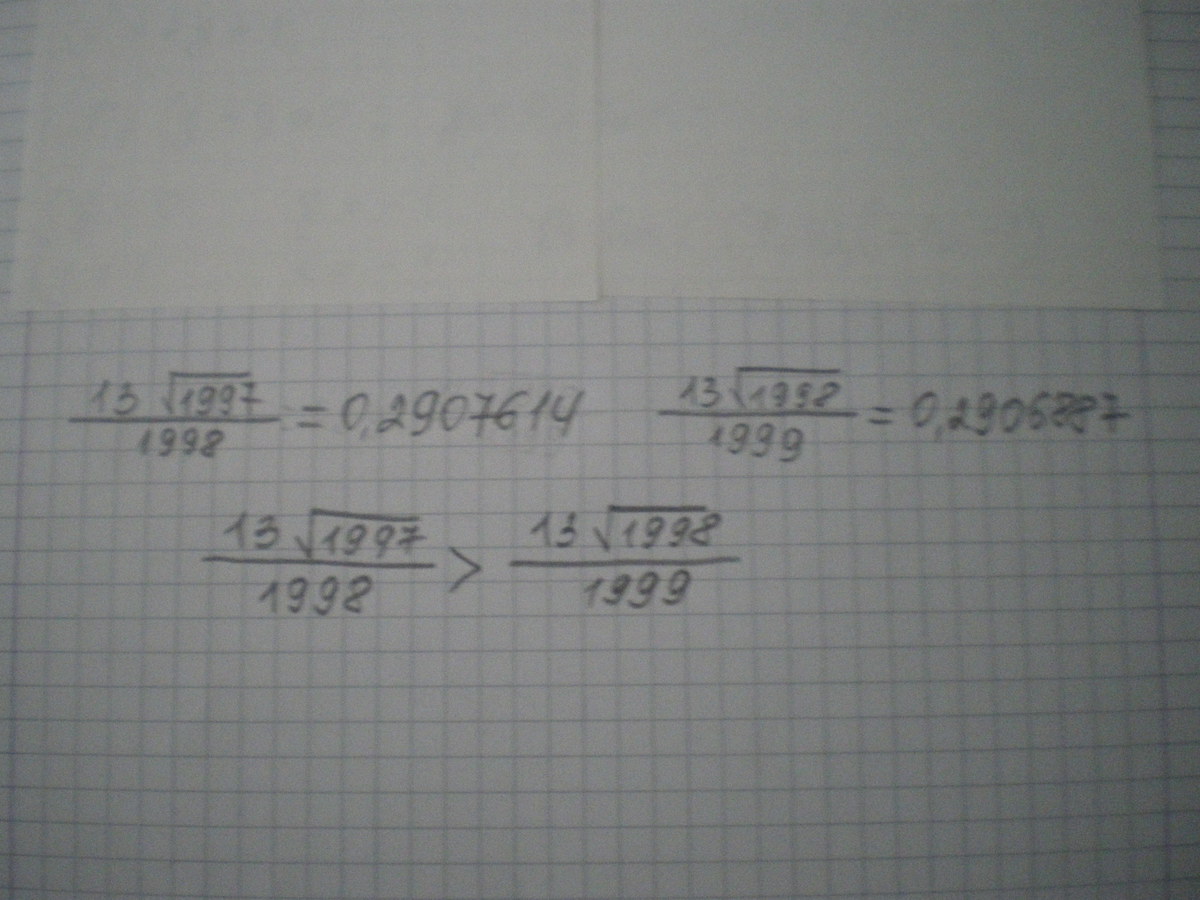 13 √1997 / 1998 = 0,2907614 13 √1998 / 1999 = 0,2906887
13 √1997 / 1998 > 13 √1998 / 1999